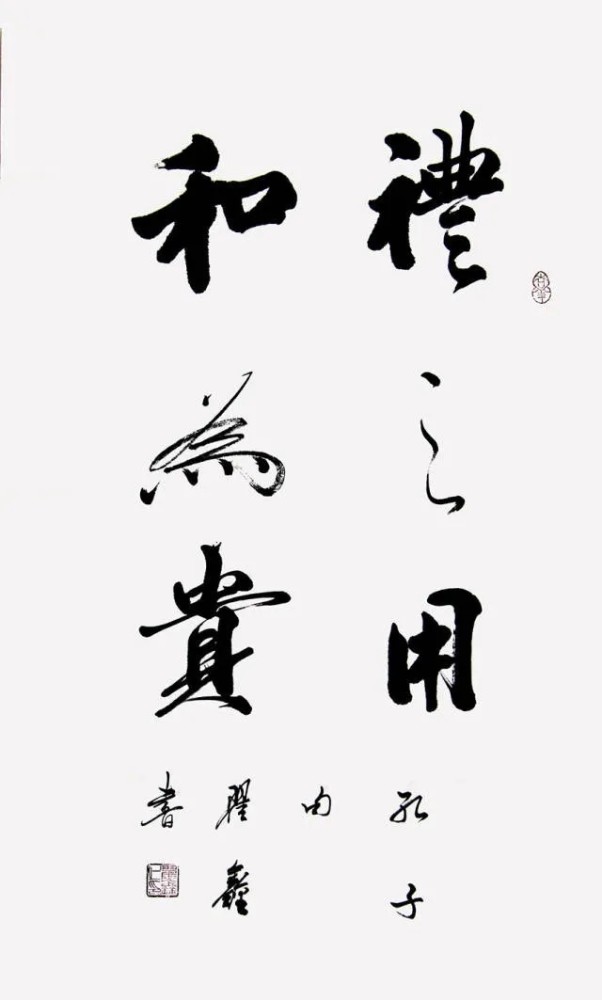 禮之用
和為貴
孔子
句
鑫
書